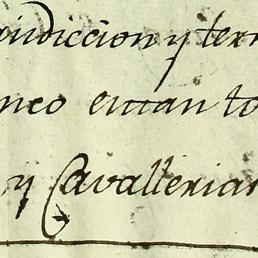 jurisdiccion y ter
nco en tan to
y Cavallerias